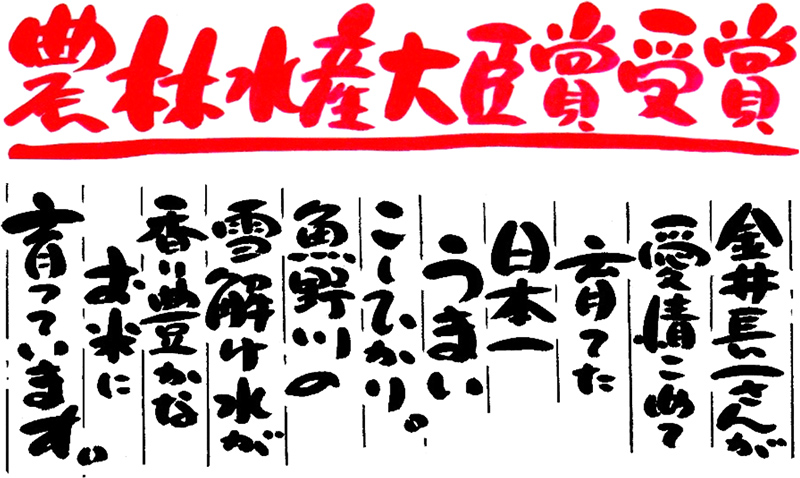 農林水産大臣賞受賞
金井長一さんが
愛情こめて
育てた
日本一
うまい
こしひかり。
魚野川の
雪解け水が
香り豊かな
お米に
育っています。